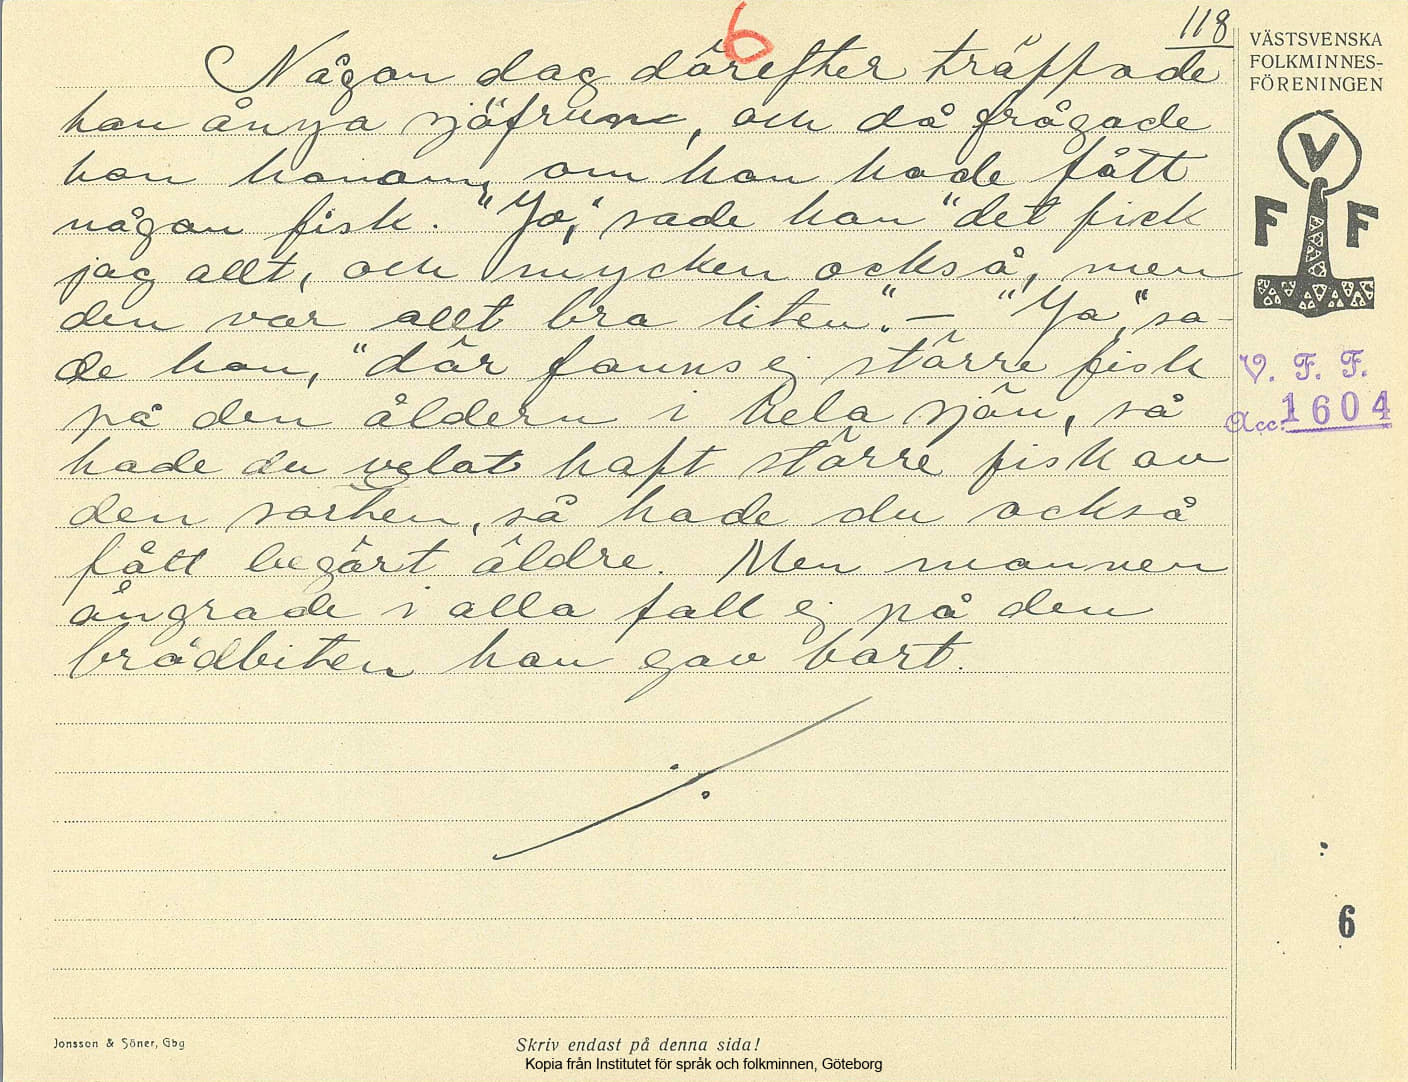 6
118
Någon dag därefter träffade
han ånya sjöfrun, och då frågade
hon honom, om han hade fått
någon fisk. "Jo," sade han "det fick
jag allt, och mycken också, men
den var allt bra liten." — "Ja," sa-
de hon, "där fanns ej större fisk
på den åldern i hela sjön, så
hade du velat haft större fisk av
den sorten, så hade du också
fått begärt äldre. Men mannen
ångrade i alla fall ej på den
brödbiten han gav bort.
VÄSTSVENSKA
FOLKMINNES-
FÖRENINGEN
V
F F
V. F. F.
Acc. 1604
6
Jonsson & Söner, Gbg
Skriv endast på denna sida!
Kopia från Institutet för språk och folkminnen, Göteborg